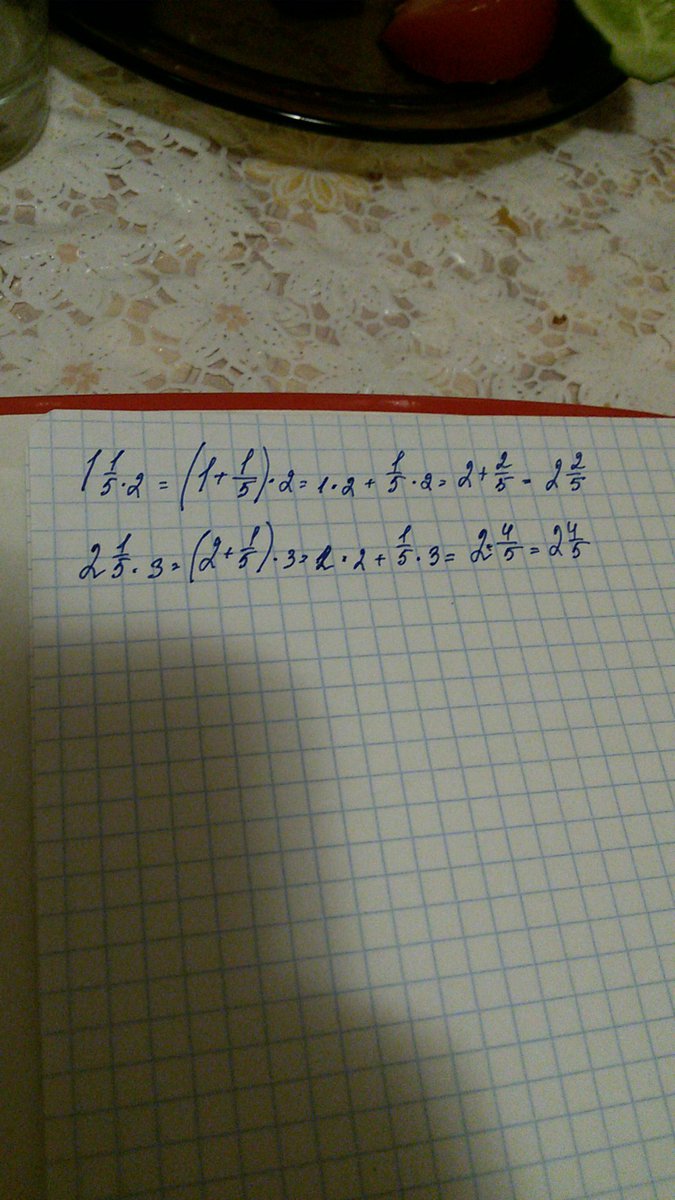 1 1/5 · 2 = (1 + 1/5) · 2 = 1 · 2 + 1/5 · 2 = 2 + 2/5 = 2 2/5
2 1/5 · 3 = (2 + 1/5) · 3 = 2 · 2 + 1/5 · 3 = 2 + 4/5 = 2 4/5